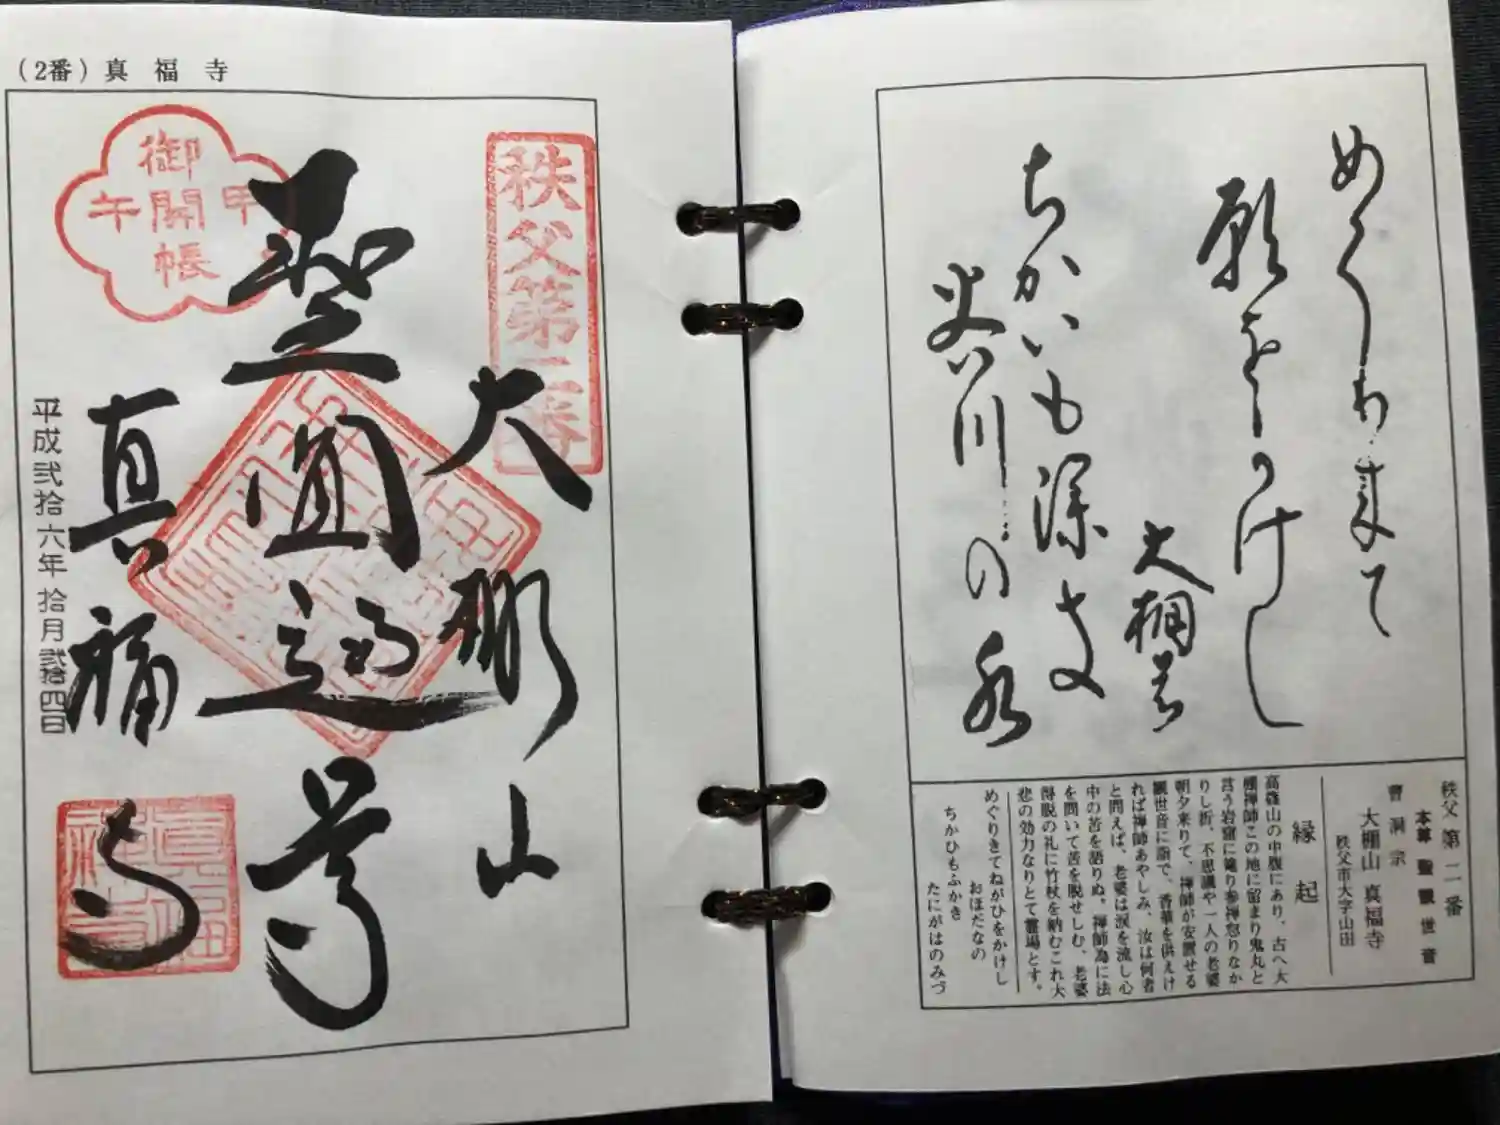 めぐり来て
願をかけし
大棚の
ちかいも深き
谷川の水
秩父第二番
本尊 聖観世音
曹洞宗
大棚山 真福寺
秩父市大字山田
縁起
高篠山の中腹にあり、古へ大
棚禅師この地に留まり鬼丸と
言う岩窟に篭り参禅怠りなか
りし折、不思議や一人の老婆
朝夕来りて、禅師が安置せる
観世音に詣で、香華を供えけ
れば禅師あやしみ、汝は何者
と問えば、老婆は涙を流し心
中の苦を語りぬ。禅師為に法
を問いて苦を脱せしむ、老婆
得脱の礼に竹杖を納むこれ大
悲の効力なりとて霊場とす。
めぐりきてねがひをかけし
おほだなの
ちかひもふかき
たにがはのみづ
(2番) 真福寺
秩父第二番
大棚山
御開帳
甲午
聖圓通尊
真福寺
平成弐拾六年拾月弐拾四日